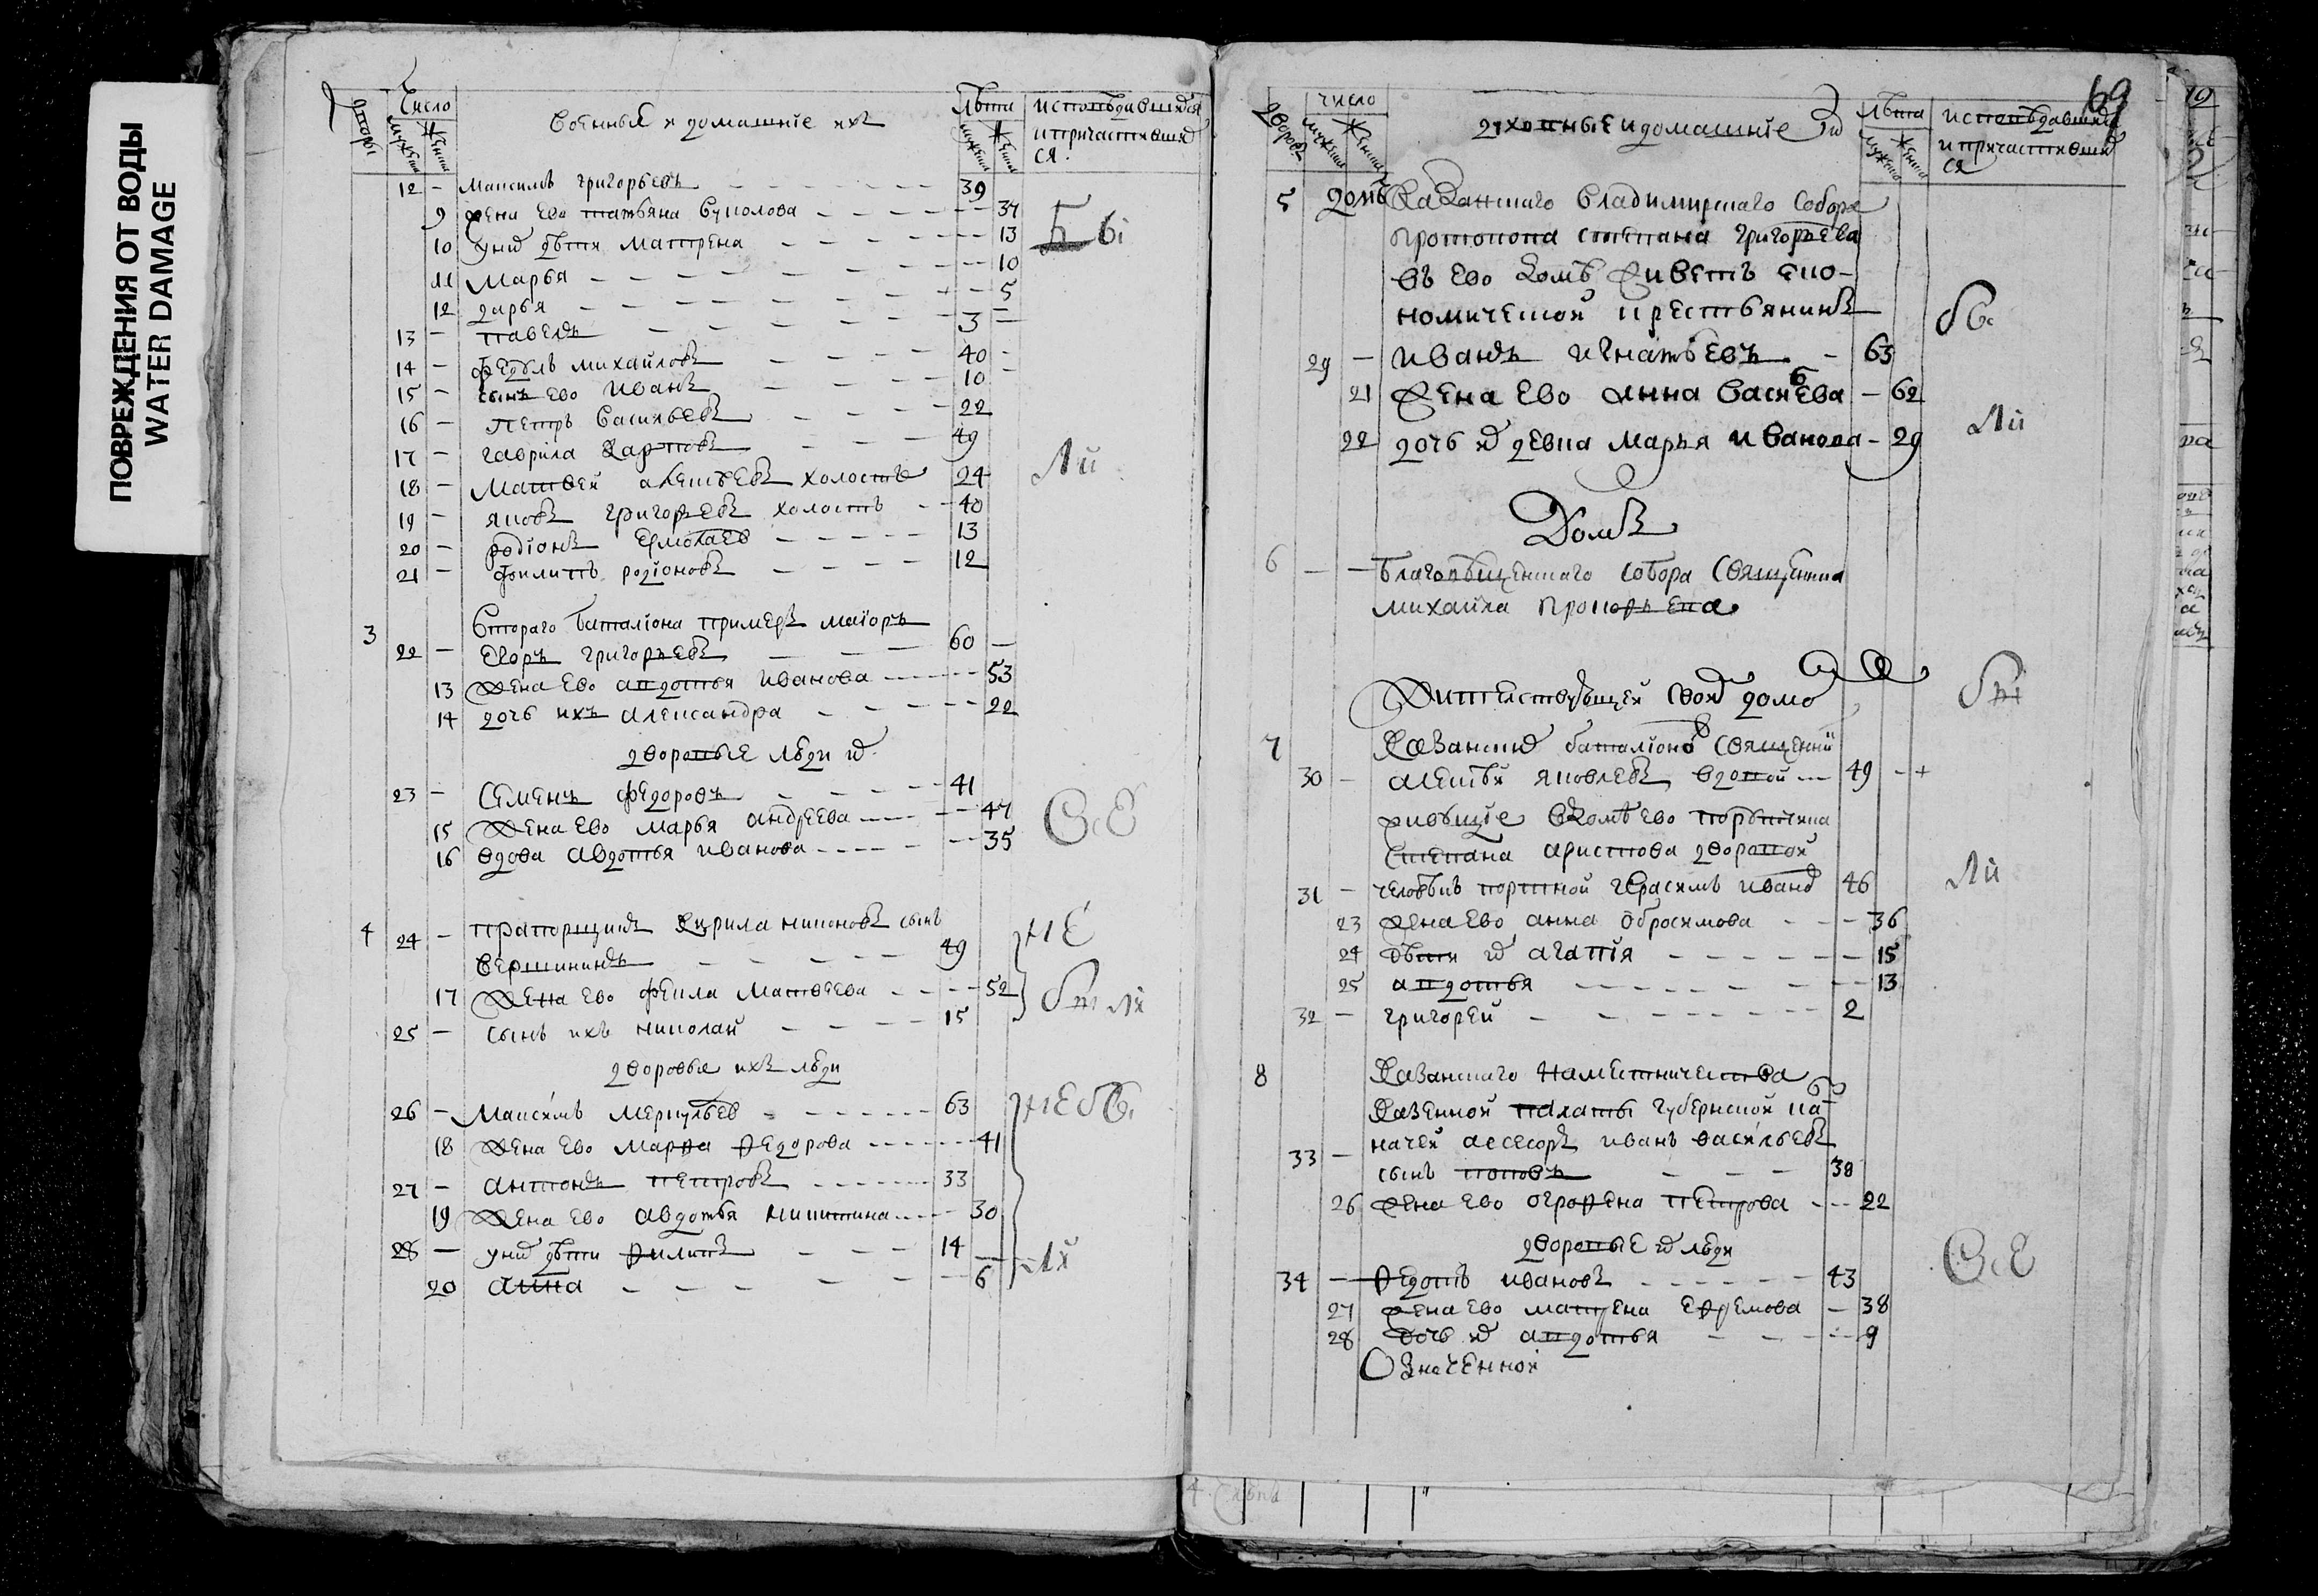 ПОВРЕЖДЕНИЯ ОТ ВОДЫ
WATER DAMAGE
дворы
Число
мужска
женска
Военныя и домашніе ихъ
Лѣта
мужска
женска
исповѣдавшихся
и причастивших
ся.
12 – Максимъ григорьевъ – 39
9 жена ево татьяна Вуколова – 37
10 унихъ дѣти Матрена – 13
11 Марья – 10
12 дарья – 5
13 – павелъ – 3
14 – федоръ михайловъ – 40
15 – сынъ ево Иванъ – 10
16 – Петръ Васильевъ – 22
17 – гаврила Карповъ – 49
18 – Матвей алексѣевъ холостъ 24
19 – яковъ григорьевъ холостъ – 40
20 – родіонъ Ермолаев – 13
21 – филиппъ родіоновъ – 12
3 Втораго баталіона примеръ маіоръ
22 – Егоръ григорьевъ – 60 –
13 Жена Ево авдотья иванова – 53
14 дочь ихъ александра – 22
дворовые люди их
23 – Семенъ федоровъ – 41
15 Жена Ево марья андреева – 47
16 вдова авдотья иванова – 35
4 24 – прапорщикъ Кирила никоновъ сынъ
Вершининъ – 49
17 Жена ево фекла Матвеева – 52
25 – сынъ ихъ николай – 15
дворовые ихъ люди
26 – Максимъ Меркульев – 63
18 Жена Ево марфа федорова – 41
27 – антонъ петровъ – 33
19 Жена Ево авдотья никитина – 30
28 – унихъ дѣти филипъ – 14
20 анна – 6
69
дворовъ
число
мужска
женска
духовные и домашніе их
Лѣта
мужска
женска
исповѣдавших
и причастивших
ся
5 домъ Казанскаго Владимирскаго Собора
протопопа степана григорьева
въ ево домѣ живетъ эко-
номической крестьянинъ
29 – иванъ игнатьевъ – 63
21 Жена Ево анна васильева – 62
22 дочь их девка марья иванова – 29
Домъ
6 – – благовѣщенскаго собора Священника
михайла прокопьева
Жителствующей в домѣ
7 Казанских баталіоновъ Священник
30 – алексѣй яковлевъ вдовой – 49 – +
живущіе в домѣ ево порутчика
степана аристова дворовой
31 – человѣкъ портной герасимъ иванов 46
23 Жена Ево анна обросимова – 36
24 дѣти их агапія – 15
25 авдотья – 13
32 – григорей – 2
8 Казанскаго намѣстничества
Казенной палаты губернской каз
33 – начей асесоръ иванъ васильевъ
сынъ поповъ – 38
26 жена ево огрофена петрова – 22
дворовые их люди
34 – федотъ ивановъ – 43
27 жена ево матрена ефремова – 38
28 дочь их авдотья – 9
Означенной